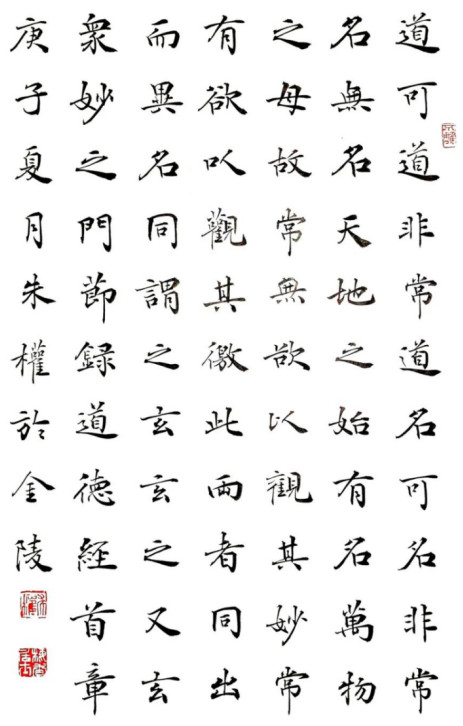 道可道非常道名可名非常
名無名天地之始有名萬物
之母故常無欲以觀其妙常
有欲㕥觀其徼此兩者同出
而異名同謂之玄玄之又玄
衆妙之門節録道德經首章
庚子夏月朱權於金陵